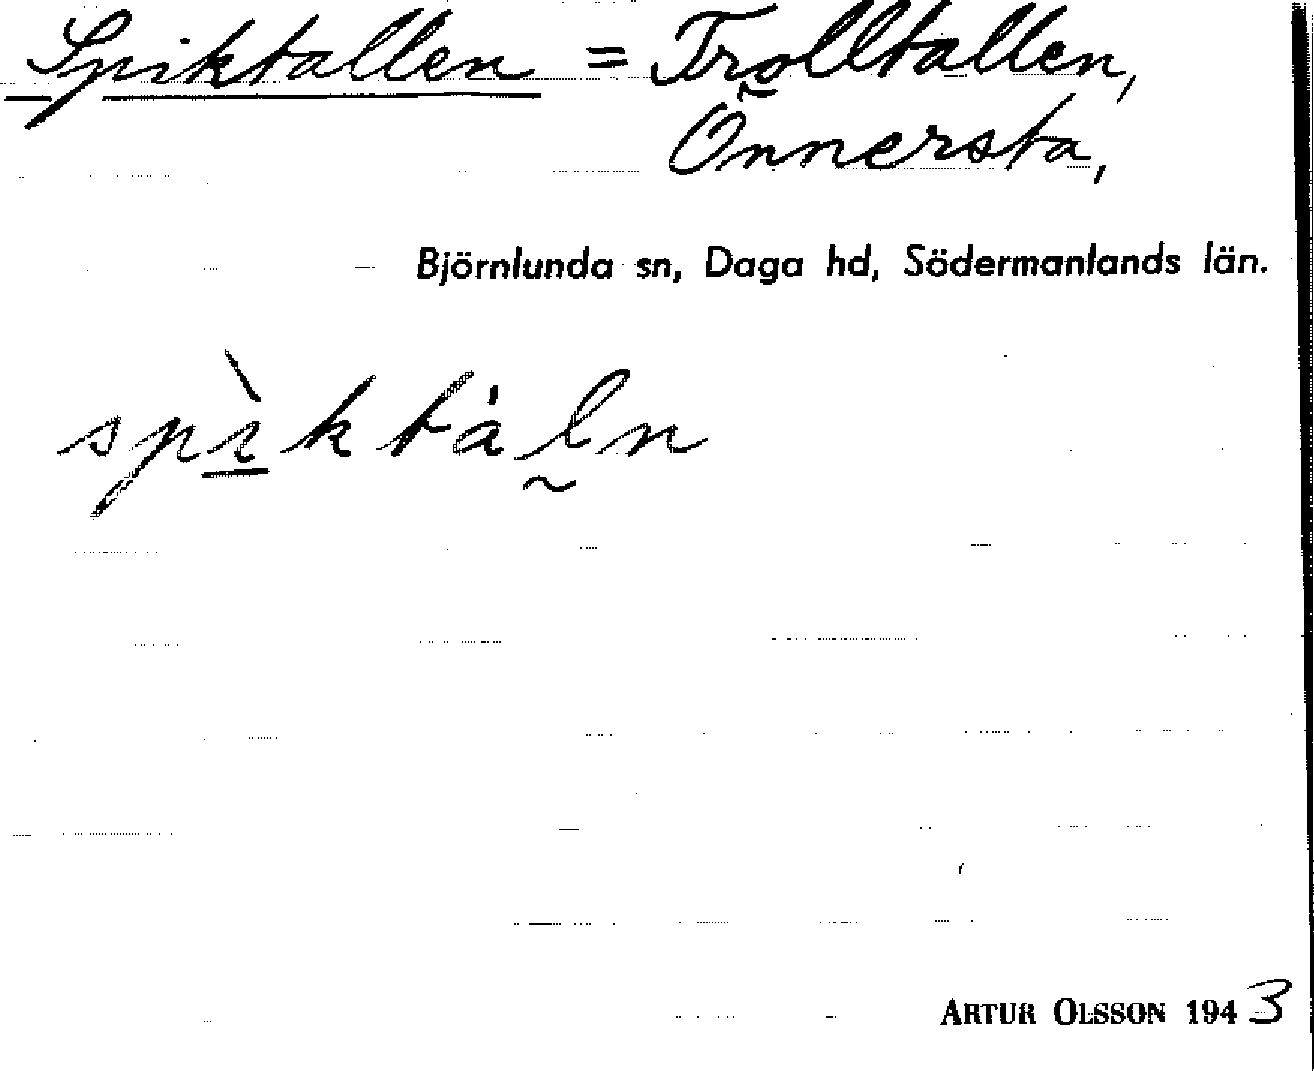 Spiktallen = Trolltallen,
Önnersta,
Björnlunda sn, Daga hd, Södermanlands län.
spìktàl̰n
ARTUR OLSSON 1943